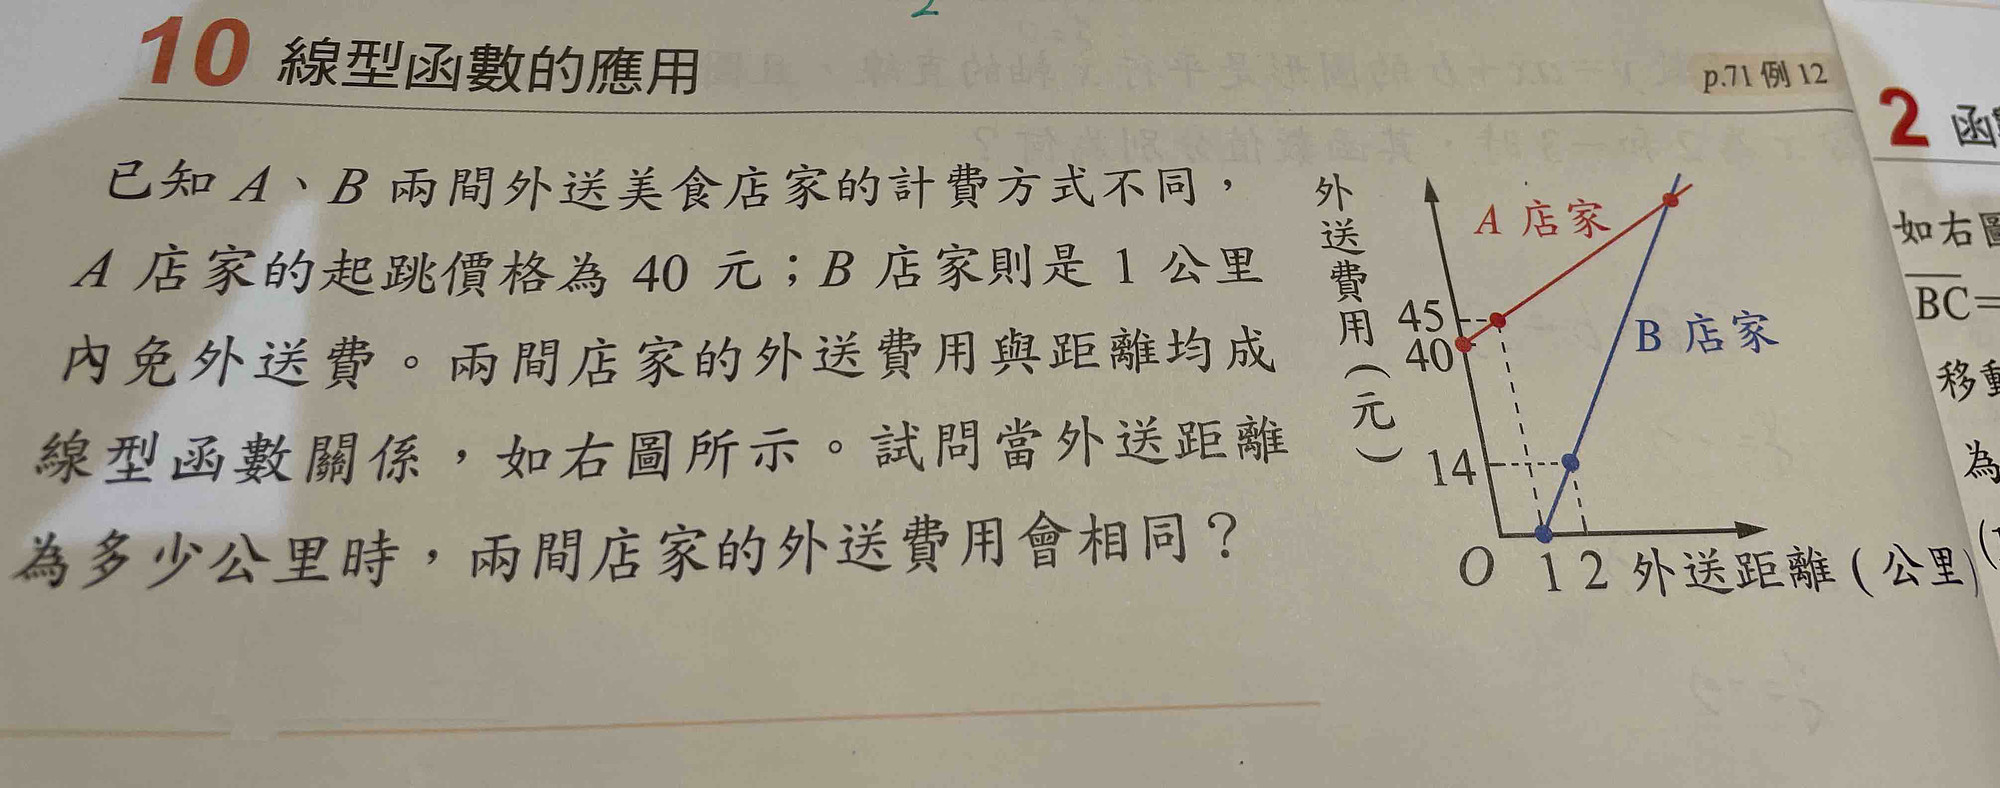 10 線型函數的應用
p.71 例 12
已知 A、B 兩間外送美食店家的計費方式不同,
A 店家的起跳價格為 40 元;B 店家則是 1 公里
內免外送費。兩間店家的外送費用與距離均成
線型函數關係,如右圖所示。試問當外送距離
為多少公里時,兩間店家的外送費用會相同?
外送費用(元)
A 店家
B 店家
45
40
14
O 1 2 外送距離(公里)
2
如右
BC=
移
為